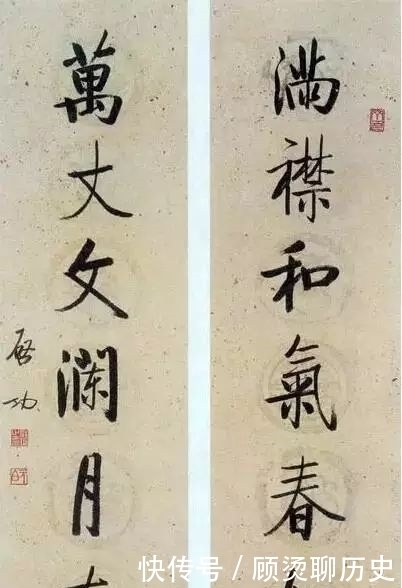 滿襟和氣春
萬丈文瀾月
啟功
快传号 / 顾烫聊历史